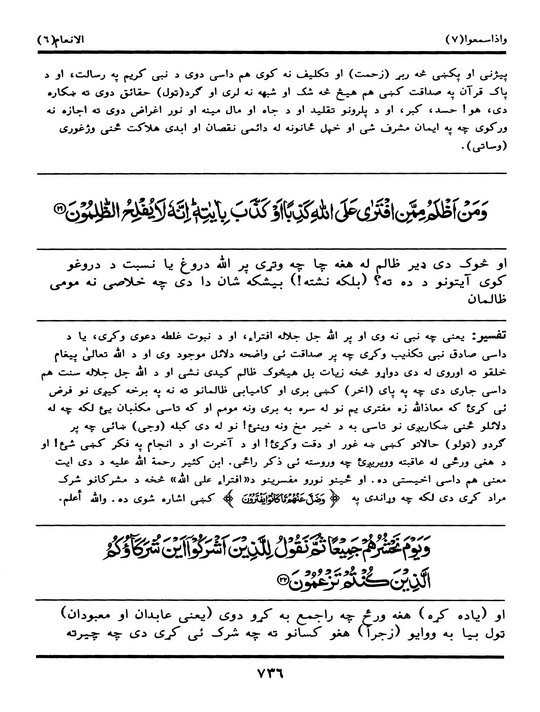 واذاسمعوا(٧)
الانعام(٦)
پیژنی او پکښی څه ربړ (زحمت) او تکلیف نه کوی هم داسی دوی د نبی کریم په رسالت، او د
پاک قرآن په صداقت کښی هم هیڅ څه شک او شبهه نه لری او ګرد(ټول) حقائق دوی ته ښکاره
دی، هو! حسد، کبر، او د پلرونو تقلید او د جاه او مال مینه او نور اغراض دوی ته اجازه نه
ورکوی چه په ایمان مشرف شی او خپل ځانونه له دائمی نقصان او ابدی هلاکت ځنی وژغوری
(وساتی).
وَمَنْ أَظْلَمُ مِمَّنِ افْتَرٰی عَلَی اللهِ كَذِبًا أَوْ كَذَّبَ بِاٰیٰتِهٖ اِنَّهٗ لَا یُفْلِحُ الظّٰلِمُوْنَ ﴿۲۱﴾
او څوک دی ډیر ظالم له هغه چا چه وتړی پر الله دروغ یا نسبت د دروغو
کوی آیتونو د ده ته؟ (بلکه نشته!) بیشکه شان دا دی چه خلاصی نه مومی
ظالمان
تفسیر: یعنی چه نبی نه وی او پر الله جل جلاله افتراء، او د نبوت غلطه دعوی وکړی، یا د
داسی صادق نبی تکذیب وکړی چه پر صداقت ئی واضحه دلائل موجود وی او د الله تعالیٰ پیغام
خلقو ته اوروی له دی دواړو څخه زیات بل هیڅوک ظالم کیدی نشی او د الله جل جلاله سنت هم
داسی جاری دی چه په پای (اخر) کښی بری او کامیابی ظالمانو ته نه په برخه کیږی نو فرض
ئی کړئ که معاذالله زه مفتری یم نو له سره به بری ونه مومم او که تاسی مکذبان یئ لکه چه له
دلائلو ځنی ښکاریږی نو تاسی به د خیر مخ ونه وینئ! نو له دی کبله (وجی) ښائی چه پر
ګردو (تولو) حالاتو کښی ښه غور او دقت وکړئ! او د آخرت او د انجام په فکر کښی شئ! او
د هغی ورځی له عاقبته وویریږئ چه وروسته ئی ذکر راځی. ابن کثیر رحمة الله علیه د دی آیت
معنی هم داسی اخیستی ده. او ځینو نورو مفسرینو د«افتراء علی الله» څخه د مشرکانو شرک
مراد کړی دی لکه چه وړاندی په ﴿ وَضَلَّ عَنْهُمْ مَّا كَانُوْا یَفْتَرُوْنَ ﴾ کښی اشاره شوی ده. والله أعلم.
وَیَوْمَ نَحْشُرُهُمْ جَمِیْعًا ثُمَّ نَقُوْلُ لِلَّذِیْنَ اَشْرَكُوْۤا اَیْنَ شُرَكَآؤُكُمُ
الَّذِیْنَ كُنْتُمْ تَزْعُمُوْنَ ﴿۲۲﴾
او (یاده کړه) هغه ورځ چه راجمع به کړو دوی (یعنی عابدان او معبودان)
تول بیا به ووایو (زجراً) هغو کسانو ته چه شرک ئی کړی دی چه چیرته
٧٣٦